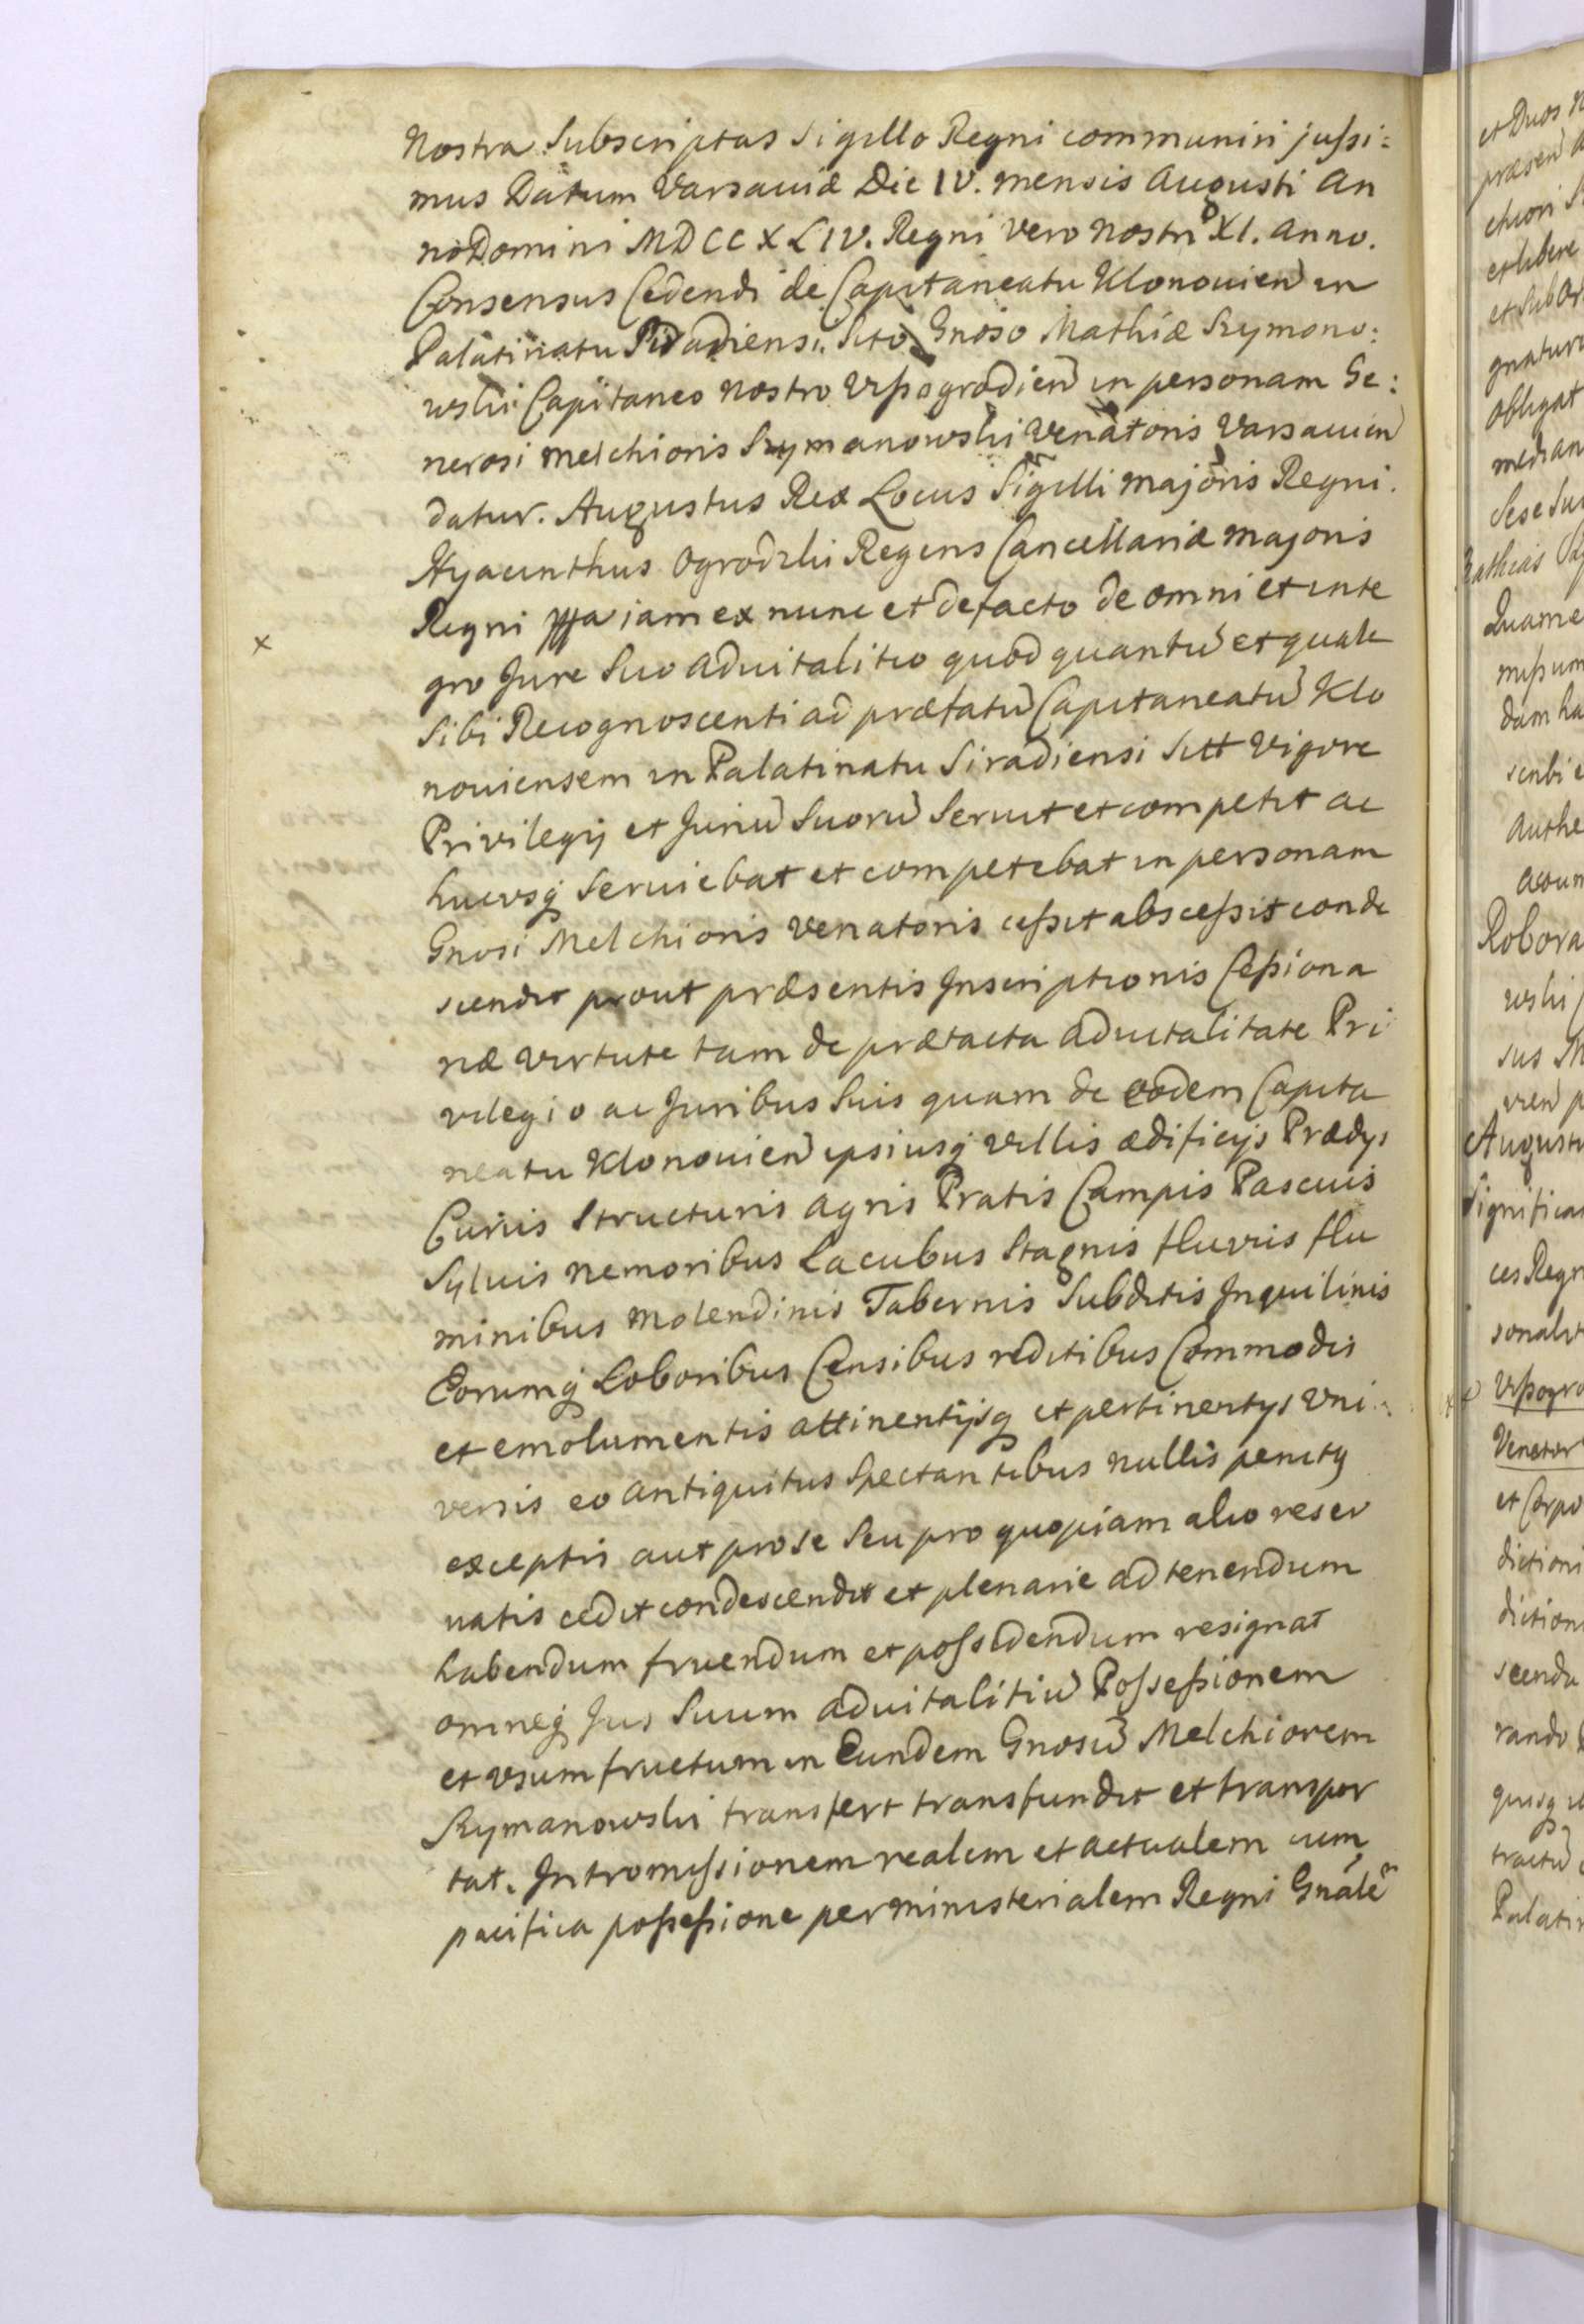 Nostra Subscriptas Sigillo Regni communiri jussi:
mus Datum Varsaviæ Die IV. mensis Augusti An
no Domini MDCCXLIV. Regni vero Nostri XI. Anno.
Consensus Cedendi de Capitaneatu Klonovien in
Palatinatu Siradiensi Sito Gnoso Mathiæ Szymono:
wski Capitaneo Nostro Vyssogrodien in personam Ge:
nerosi Melchioris Szymanowski Venatoris Varsavien
datur. Augustus Rex Locus Sigilli majoris Regni.
Hyacinthus Ogrodzki Regens Cancellariæ majoris
Regni iam ex nunc et de facto de omni et inte
gro Jure Suo advitalitio quod quantu et quale
Sibi Recognoscenti ad præfatu Capitaneatu Klo
noviensem in Palatinatu Siradiensi Sitt vigore
Privilegij et Juriu Suoru Servit et competit ac
hucusq serviebat et competebat in personam
Gnosi Melchioris Venatoris cessit abscessit conde
scendit prout præsentis Inscriptionis Cessiona
riæ virtute tam de prætacta advitalitate Pri
vilegio ac Juribus Suis quam de eodem Capita
neatu Klonovien ipsiusq villis ædificijs Prædys
Curiis Structuris agris Pratis Campis Pascuis
Sylvis nemoribus Lacubus Stagnis fluviis flu
minibus Molendinis Tabernis Subditis Inquilinis
Eorumq Laboribus Censibus reditibus Commodis
et emolumentis attinentijsq et pertinentys Uni:
versis eo antiquitus Spectantibus nullis penitq
exceptis aut pro se Seu pro quopiam alio reser
vatis cedit condescendit et plenarie ad tenendum
habendum fruendum et possidendum resignat
omneq Jus Suum advitalitiu Possessionem
et usumfructum in Eundem Gnosu Melchiorem
Szymanowski transfert transfundit et transpor
tat. Intromissionem realem et actualem cum
pacifica possessione per ministerialem Regni Gnale